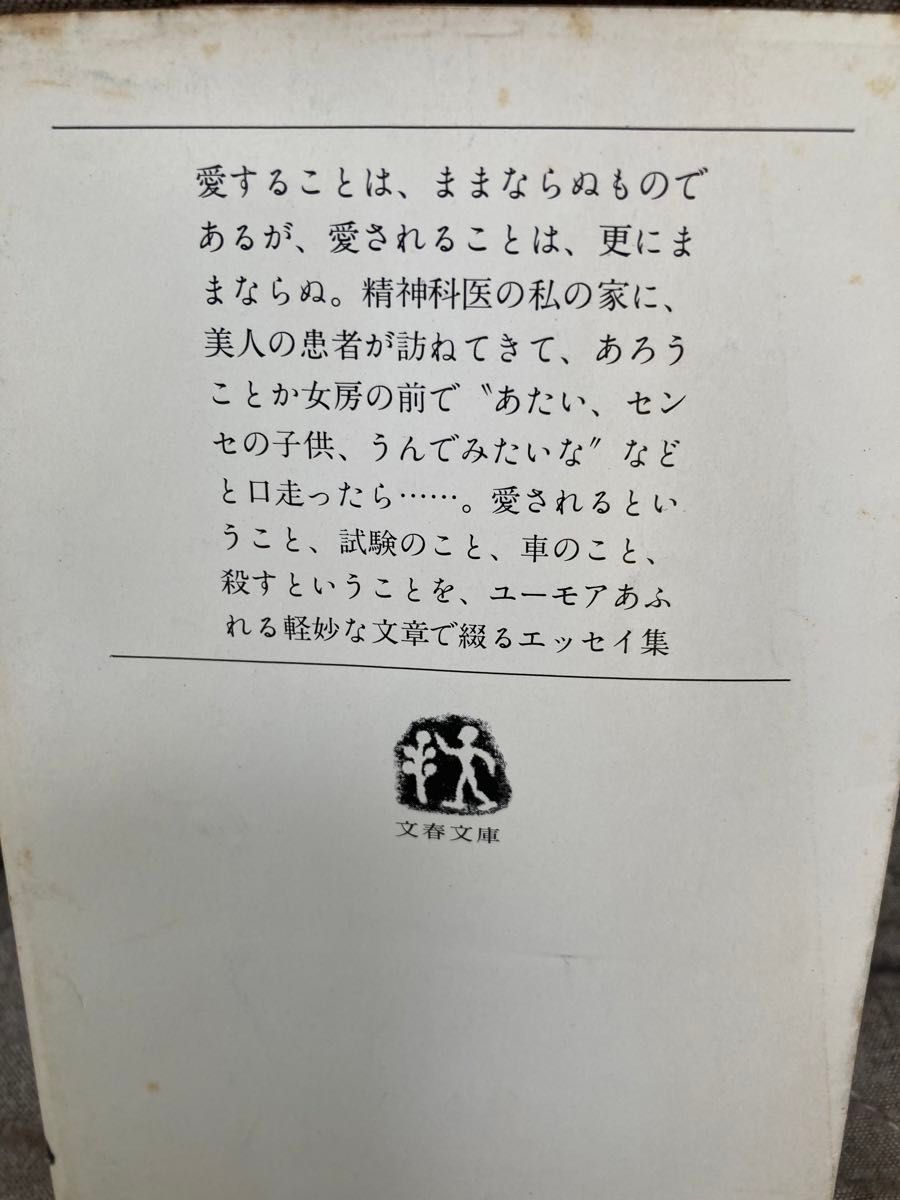 愛することは、ままならぬもので
あるが、愛されることは、更にま
まならぬ。精神科医の私の家に、
美人の患者が訪ねてきて、あろう
ことか女房の前で〝あたい、セン
セの子供、うんでみたいな〟など
と口走ったら……。愛されるとい
うこと、試験のこと、車のこと、
殺すということを、ユーモアあふ
れる軽妙な文章で綴るエッセイ集
文春文庫